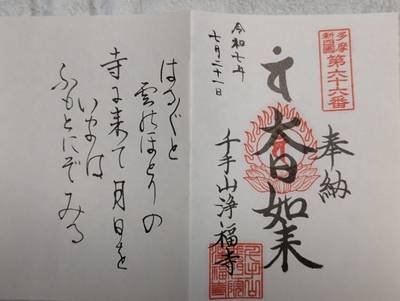 多摩
新四国
第六十六番
奉納
大日如来
令和七年
七月二十一日
千手山浄福寺
はる〴〵と
雲のほとりの
寺に来て月日を
いまは
ふもとにぞみる